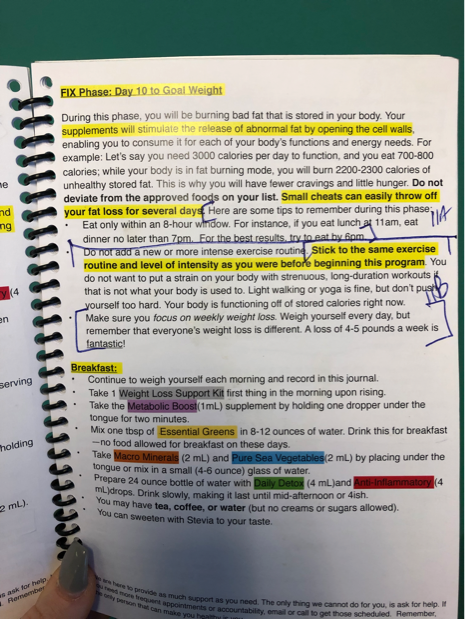 FIX Phase: Day 10 to Goal Weight
During this phase, you will be burning bad fat that is stored in your body. Your
supplements will stimulate the release of abnormal fat by opening the cell walls,
enabling you to consume it for each of your body's functions and energy needs. For
example: Let's say you need 3000 calories per day to function, and you eat 700-800
calories; while your body is in fat burning mode, you will burn 2200-2300 calories of
unhealthy stored fat. This is why you will have fewer cravings and little hunger. Do not
deviate from the approved foods on your list. Small cheats can easily throw off
your fat loss for several days. Here are some tips to remember during this phase:
• Eat only within an 8-hour window. For instance, if you eat lunch at 11am, eat
dinner no later than 7pm. For the best results, try to eat by 6pm.
11A
• Do not add a new or more intense exercise routine. Stick to the same exercise
routine and level of intensity as you were before beginning this program. You
do not want to put a strain on your body with strenuous, long-duration workouts if
that is not what your body is used to. Light walking or yoga is fine, but don't push
yourself too hard. Your body is functioning off of stored calories right now.
11B
• Make sure you focus on weekly weight loss. Weigh yourself every day, but
remember that everyone's weight loss is different. A loss of 4-5 pounds a week is
fantastic!
Breakfast:
• Continue to weigh yourself each morning and record in this journal.
• Take 1 Weight Loss Support Kit first thing in the morning upon rising.
• Take the Metabolic Boost(1mL) supplement by holding one dropper under the
tongue for two minutes.
• Mix one tbsp of Essential Greens in 8-12 ounces of water. Drink this for breakfast
—no food allowed for breakfast on these days.
• Take Macro Minerals (2 mL) and Pure Sea Vegetables(2 mL) by placing under the
tongue or mix in a small (4-6 ounce) glass of water.
• Prepare 24 ounce bottle of water with Daily Detox (4 mL)and Anti-Inflammatory (4
mL)drops. Drink slowly, making it last until mid-afternoon or 4ish.
• You may have tea, coffee, or water (but no creams or sugars allowed).
• You can sweeten with Stevia to your taste.
are here to provide as much support as you need. The only thing we cannot do for you, is ask for help. If
need more frequent appointments or accountability, email or call to get those scheduled. Remember,
only person that can make you
(4
serving
holding
2 mL).
is ask for help.
Remember,